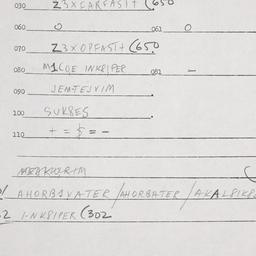 030 Z3XCARFAST+ (650
060 0 061 0
070 Z3XOPFAST+ (650
080 M1COE INKPIPER 081 -
090 JEMTEJVIM
100 SUKSES
110 + = $ = -
AHORBSVATER /AHORBATER /AKALPIKP
2 INKPIPER (302